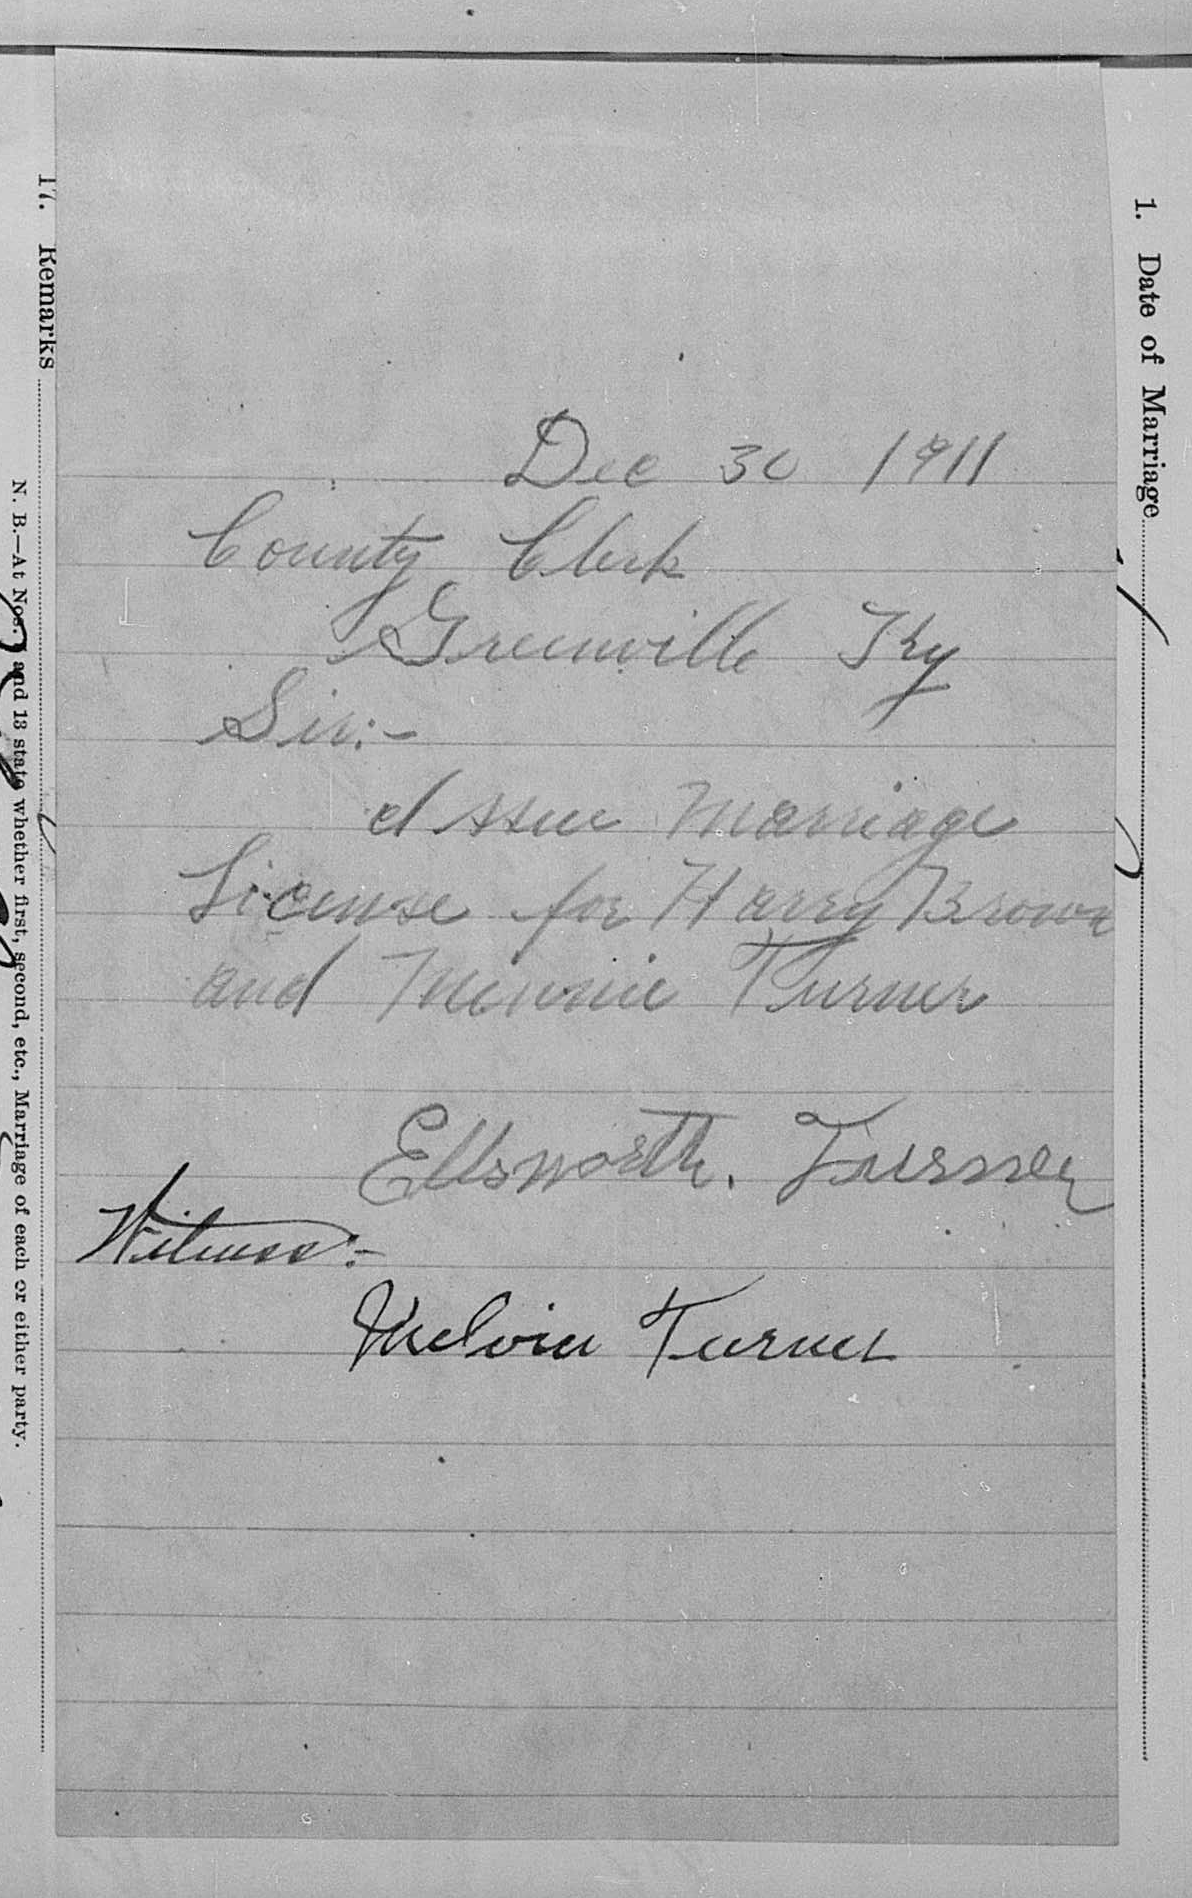 Dec 30 1911
County Clerk
Greenville Ky
Sir:-
Issue Marriage
License for Harry Brown
and Minnie Turner
Ellsworth. Turner
Witness:-
Melvin Turner
17. Remarks
N. B.—At Nos. and 13 state whether first, second, etc., Marriage of each or either party.
1. Date of Marriage